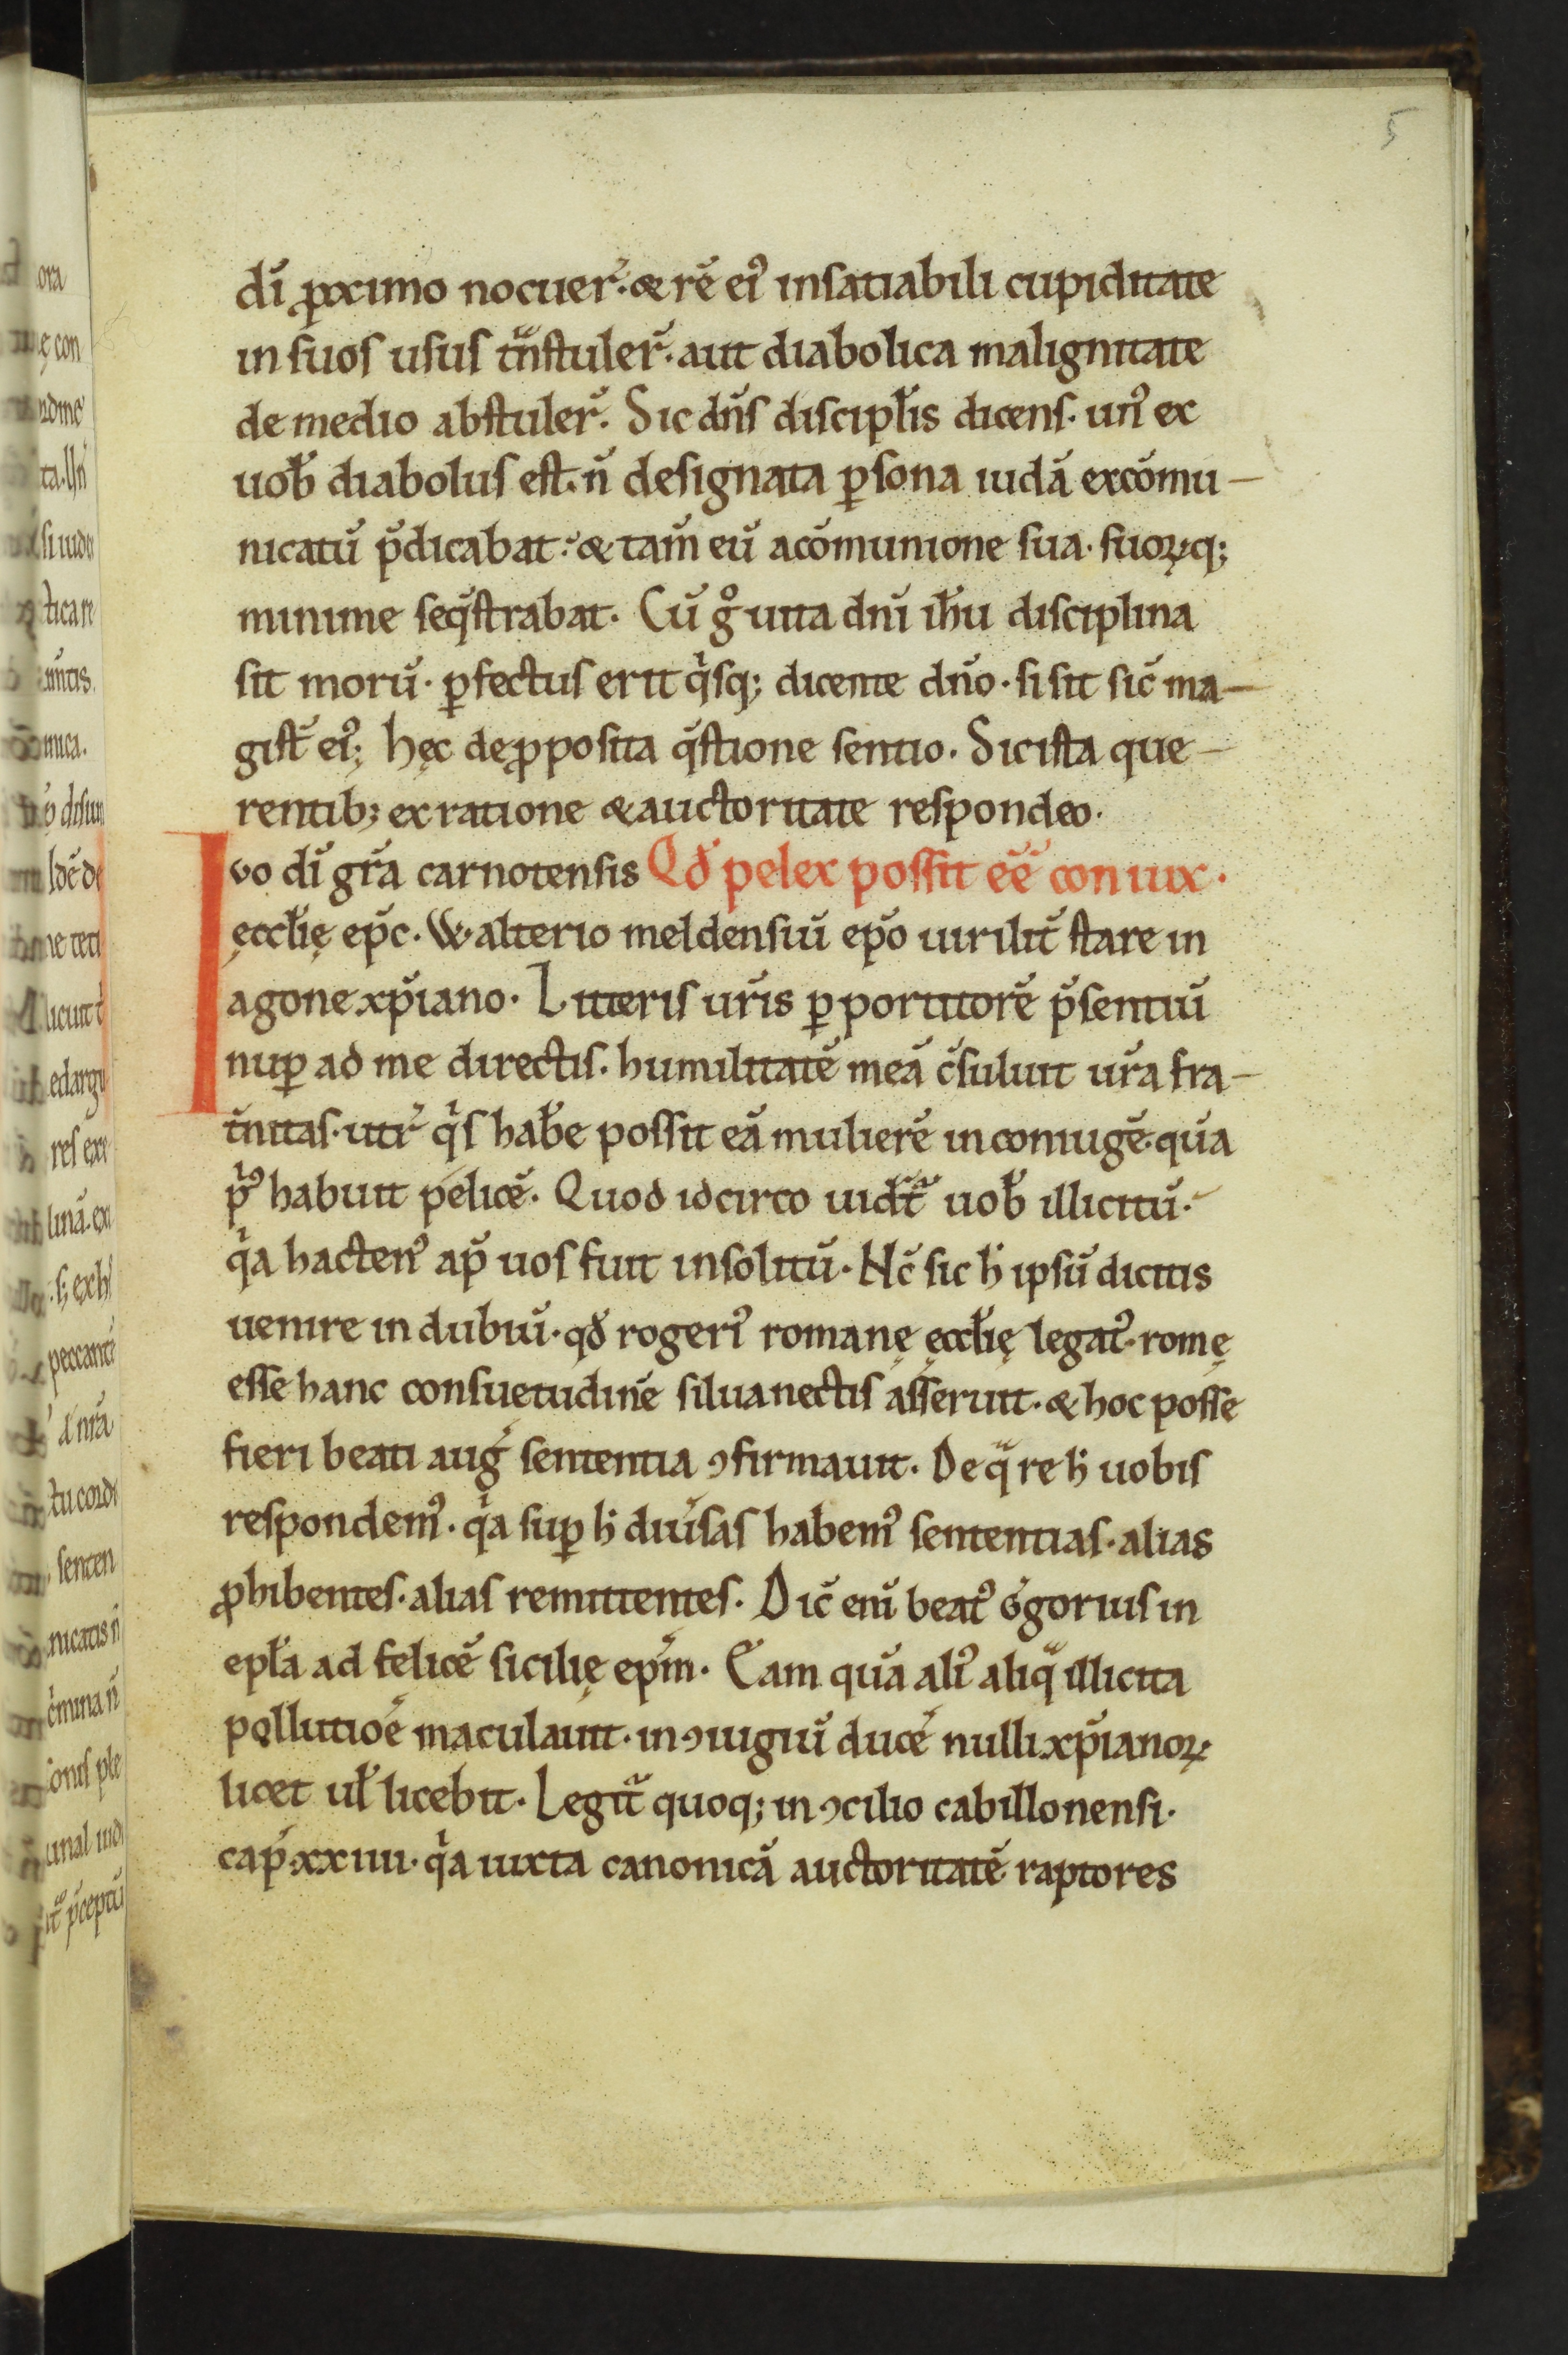 5
di̅ ꝓximo nocuer̅· & re̅ ei᷒ insatiabili cupiditate
in suos usus tͣnstuler̅· aut diabolica malignitate
de medio abstuler̅· Sic dn̅s discipl̅is dicens· un᷒ ex
uob̅ diabolus est· n̅ designata ꝑsona iuda̅ exco̅mu-
nicatu̅ p̅dicabat· & tam̅ eu̅ aco̅munione sua· suoꝝq;
minime seq̅strabat· Cu̅ gͦ uita dni̅ ih̅u disciplina
sit moru̅· ꝑfectus erit qͥsq; dicente dn̅o· si sit sic̅ ma-
gist̅ ei᷒; hęc deꝓposita q̅stione sentio· Sic ista que-
rentib; ex ratione & auctoritate respondeo·
Ivo di̅ gr̅a carnotensis Qd̅ pelex possit ee̅ coniux·
ęccl̅ię ep̅c· W·alterio meldensiu̅ ep̅o uirilit̅ stare in
agone xp̅iano· Litteris ur̅is ꝑ portitore̅ p̅sentiu̅
nuꝑ ad me directis· humilitate̅ mea̅ c̅suluit ur̅a fra-
t̅nitas· utr̅ qͥs hab̅e possit ea̅ muliere̅ in coniuge̅· qua̅
pͥ᷒ habuit pelice̅· Quod idcirco uidet̅ uob̅ illicitu̅·
qͥa hacten᷒ ap̅ uos fuit insolitu̅· Nc̅ sic h̅ ipsu̅ dicitis
uenire in dubiu̅· qd̅ rogeri᷒ romanę ęccl̅ię legat᷒· romę
esse hanc consuetudine̅ siluanectis asseruit· & hoc posse
fieri beati aug̅ sententia ꝯfirmauit· De qͣ re h̅ uobis
respondem᷒· qͥa suꝑ h̅ diu̅sas habem᷒ sententias· alias
ꝓhibentes· alias remittentes· Dic̅ eni̅ beat᷒ g̅gorius in
epl̅a ad felice̅ sicilię ep̅m· Eam qua̅ ali᷒ aliqͣ illicita
pollutio̅e maculauit· in ꝯiugiu̅ duce̅ nulli xp̅ianoꝝ
licet ul̅ licebit· Legit̅ quoq; in ꝯcilio cabillonensi·
cap̅· xxiiii· qͥa iuxta canonica̅ auctoritate̅ raptores